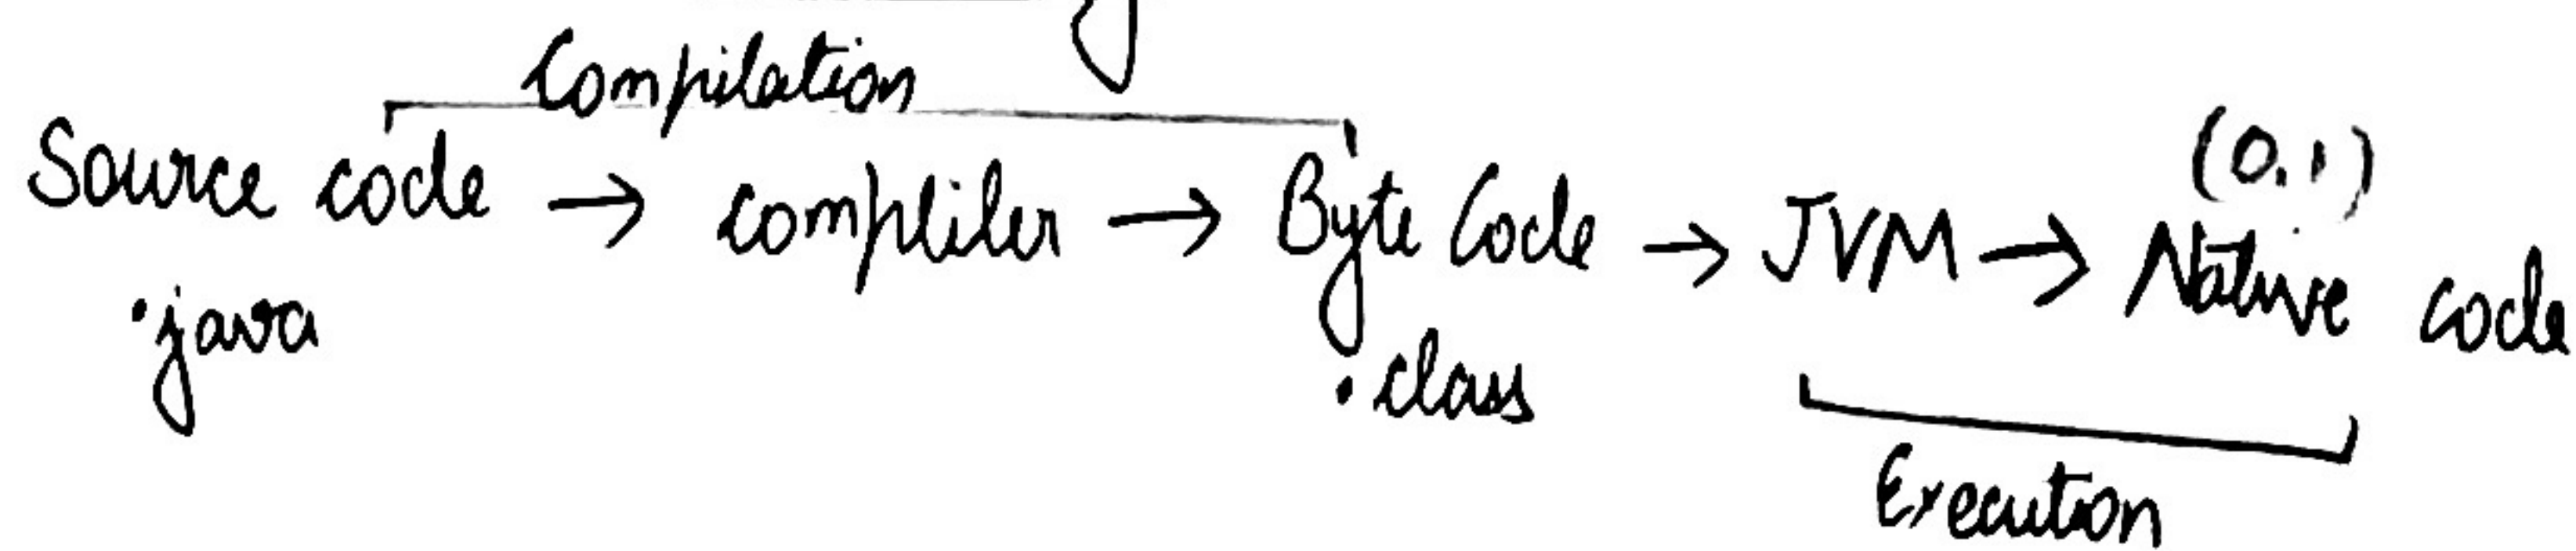 Compilation
(0.1)
Source code → compliler → Byte Code → JVM → Native code
.java
.class
Execution